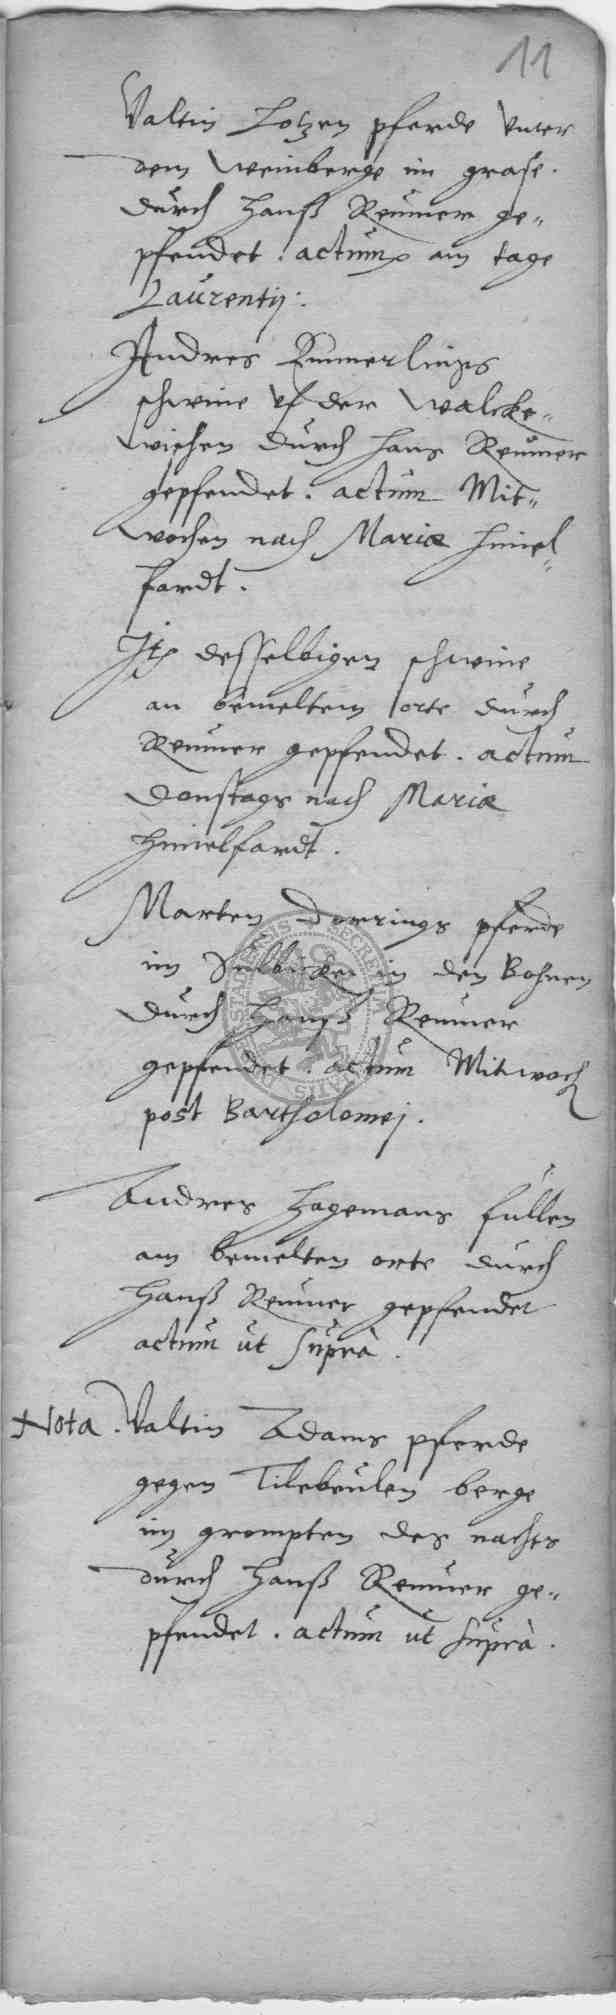 11
Valtin Lotzen pferde Unter
dem Weinberge im grase.
durch Hanß Reumer ge„
pfendet. actum am tage
Laurentij.
Andres Emmerlinges
schweine Uf der Walcke„
wiesen durch Hans Reumer
gepfendet. actum Mit„
wochen nach Mariæ himel„
fardt.
Itē desselbigen schweine
an bemeltem orte durch
Reumer gepfendet. actum
Donstags nach Mariæ
himelfardt.
Marten Dorrings pferde
im in den Bohnen
durch Hanß Reumer
gepfendet. actum Mitwoch
post Bartholomej.
Andres Hagemans fullen
am bemelten orte durch
Hanß Reumer gepfendet
actum ut suprà.
Nota. Valtin Adams pferde
gegen Tilebeulen berge
im grompten des nachts
durch Hanß Reumer ge„
pfendet. actum ut suprà.